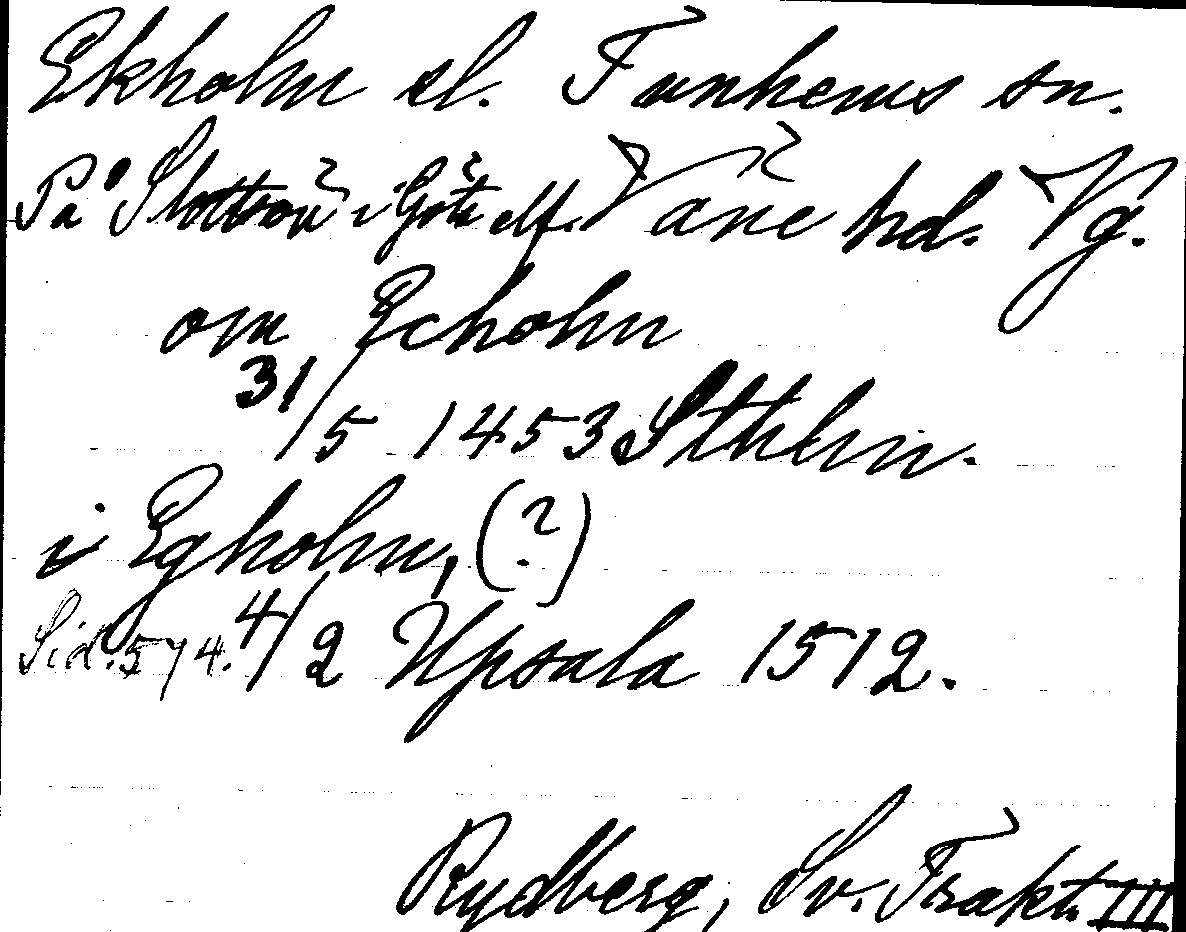 Ekholm sl. Tunhems sn.
På Slottsön i Göta elf. Väne hd. Vg.
om Echolm
31/5 1453 Sthlm.
i Egholm, (?)
Sid. 574. 4/2 Upsala 1512.
Rydberg, Sv. Trakt. III